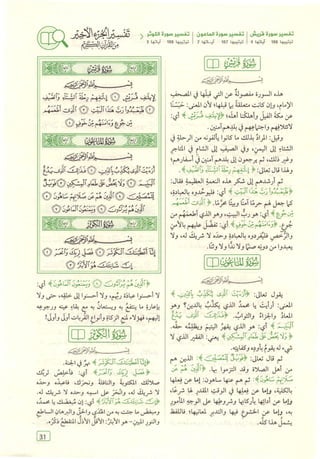 تفسير سورة قريش
ترتيبها 106 آياتها 4
تفسير سورة الماعون
ترتيبها 107 آياتها 7
تفسير سورة الكوثر
ترتيبها 108 آياتها 3
من القرآن الكريم
سورة قريش
هذه السورة مقصودة عن التي قبلها في المصحف
الإمام، وإن كانت متعلقة بما قبلها؛ لأن المعنى: حبسنا
عن مكة الفيل وأهلكنا أهله ﴿لإيلاف قريش﴾ أي:
لائتلافهم واجتماعهم في بلدهم آمنين.
وقيل: المراد بذلك ما كانوا يألفونه من الرحلة في
الشتاء إلى اليمن، وفي الصيف إلى الشام في المتاجر
وغير ذلك، ثم يرجعون إلى بلدهم آمنين في أسفارهم؛
ثم أرشدهم إلى شكر هذه النعمة العظيمة فقال:
﴿فليعبدوا رب هذا البيت﴾ أي: فليوحدوه بالعبادة،
كما جعل لهم حرماً آمناً وبيتاً محرماً. ﴿الذي أطعمهم
من جوع﴾ أي: هو رب البيت، وهو الذي أطعمهم من
جوع ﴿وآمنهم من خوف﴾ أي: تفضل عليهم بالأمن
والرخص فليفردوه بالعبادة وحده لا شريك له، ولا
يعبدوا من دونه صنماً ولا نداً ولا وثناً.
سورة الماعون
يقول تعالى: ﴿أرأيت الذي يكذب بالدين﴾
المعنى: أرأيت يا محمد الذي يكذب بالدين؟ وهو
المعاد والجزاء والثواب. ﴿فذلك الذي يدع
اليتيم﴾ أي: هو الذي يقهر اليتيم ويظلمه حقه.
﴿ولا يحض على طعام المسكين﴾ يعني: الفقير الذي لا
شيء له يقوم بأوده وكفايته.
ثم قال تعالى: ﴿فويل للمصلين﴾ هم الذين
من أهل الصلاة وقد التزموا بها، ﴿الذين هم عن
صلاتهم ساهون﴾ ثم هم عنها ساهون: إما عن فعلها
بالكلية، وإما عن فعلها في الوقت المقدر لها شرعاً،
وإما عن أدائها بأركانها وشروطها على الوجه المأمور
به، وإما عن الخشوع فيها والتدبر لمعانيها؛ فاللفظ
يشمل هذا كله.
سورة قريش
لإيلاف قريش ۝ إيلافهم رحلة الشتاء والصيف
۝ فليعبدوا رب هذا البيت ۝ الذي أطعمهم
من جوع وآمنهم من خوف ۝
سورة الماعون
أرأيت الذي يكذب بالدين ۝ فذلك الذي يدع
اليتيم ۝ ولا يحض على طعام المسكين ۝ فويل
للمصلين ۝ الذين هم عن صلاتهم ساهون ۝
الذين هم يراءون ۝ ويمنعون الماعون ۝
سورة الكوثر
إنا أعطيناك الكوثر ۝ فصل لربك وانحر
۝ إن شانئك هو الأبتر ۝
﴿الذين هم يراءون ۝ ويمنعون الماعون﴾ أي:
لا أحسنوا عبادة ربهم، ولا أحسنوا إلى خلقه، حتى ولا
بإعارة ما ينتفع به ويستعان به مع بقاء عينه ورجوعه
إليهم، فهؤلاء لمنع الزكاة وأنواع القربات أولى وأولى
سورة الكوثر
﴿إنا أعطيناك الكوثر﴾ نهر في الجنة.
﴿فصل لربك وانحر﴾ أي: فأخلص لربك
صلاتك المكتوبة والنافلة ونحرك، فاعبده وحده
لا شريك له، وانحر على اسمه وحده لا شريك له.
﴿إن شانئك هو الأبتر﴾ أي: إن مبغضك يا محمد،
ومبغض ما جئت به من الهدى والحق والبرهان الساطع
والنور المبين- هو الأبتر: الأقل الأذل المنقطع ذكره.
31